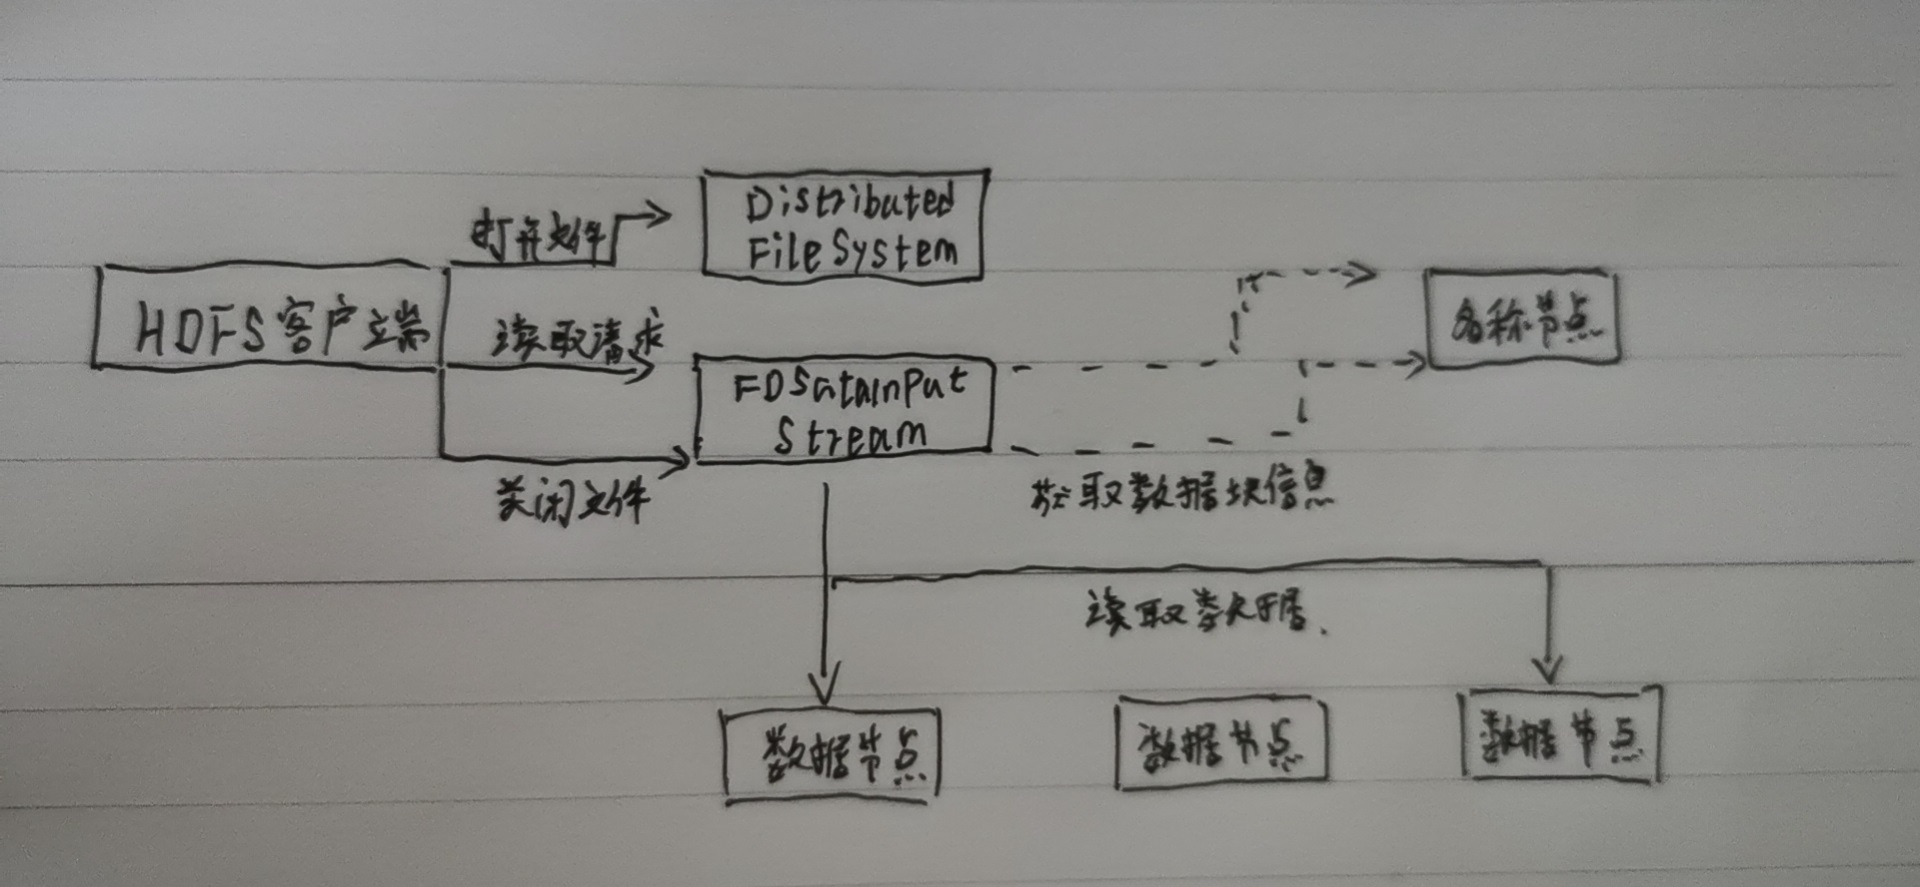 Distributed
打开文件
FileSystem
HDFS客户端
读取请求
名称节点
FDSataInput
Stream
关闭文件
获取数据块信息
读取数据.
数据节点
数据节点
数据节点